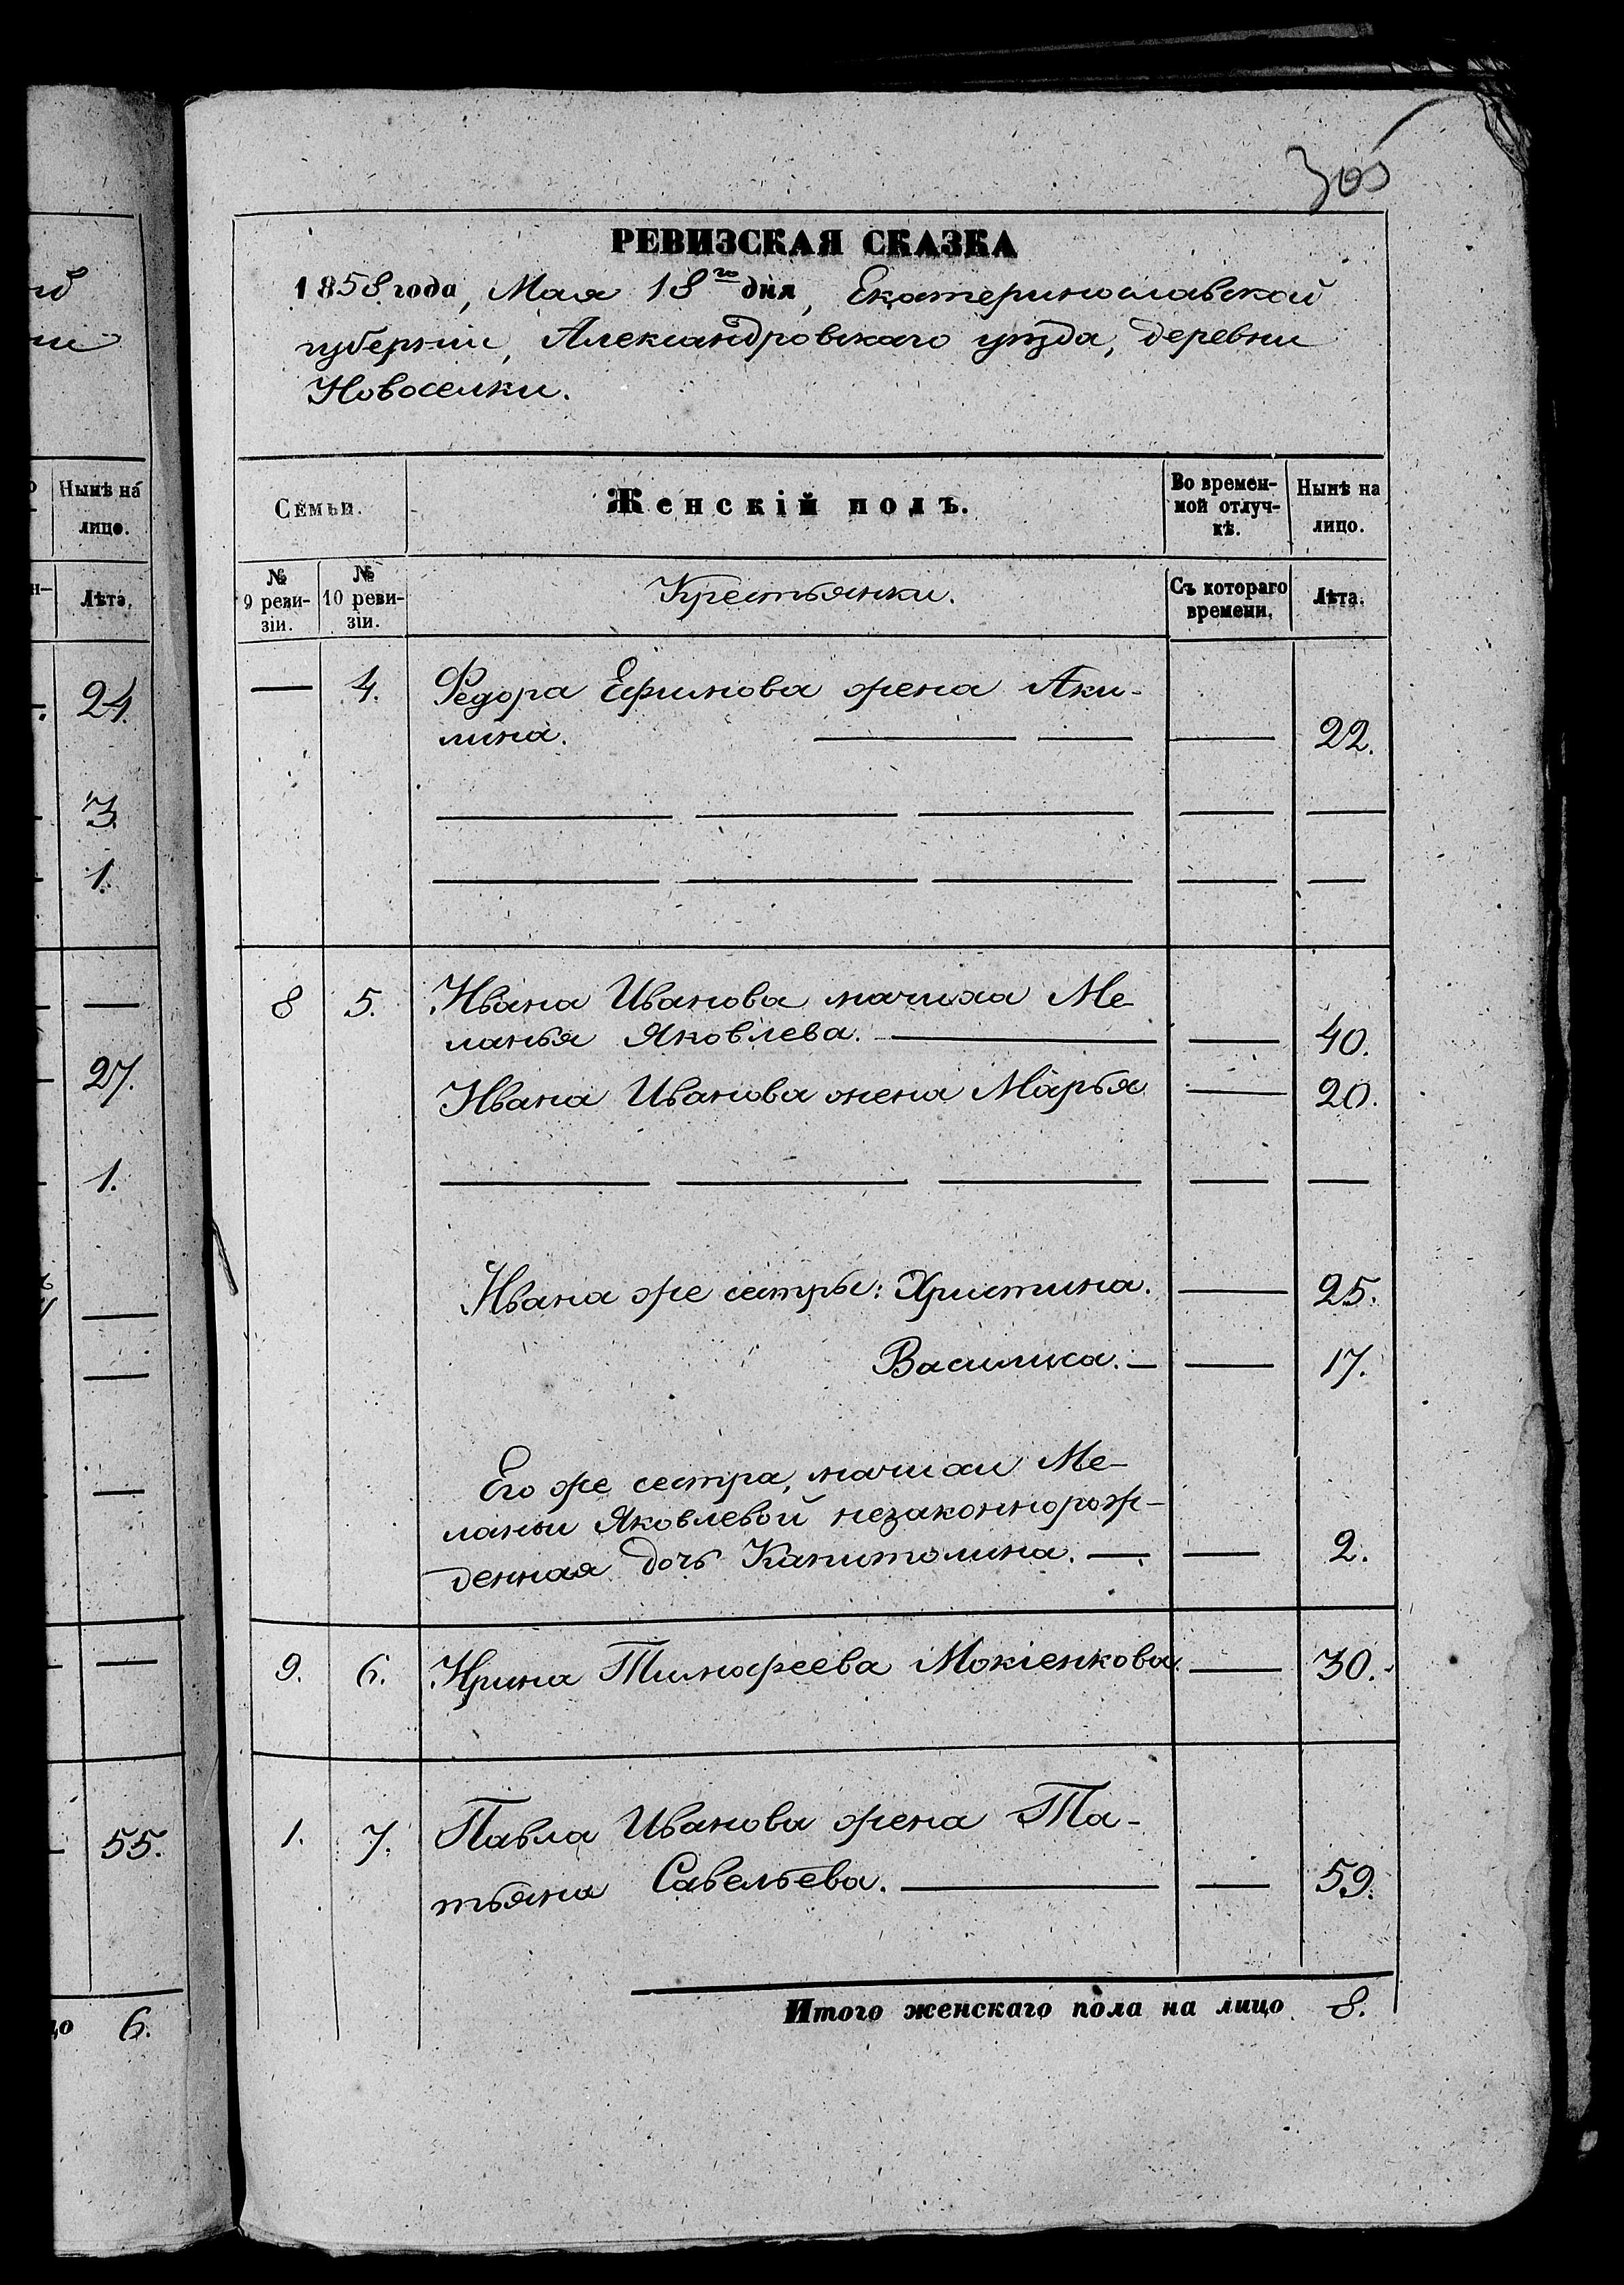 305
РЕВИЗСКАЯ СКАЗКА
1858 года, Мая 18го дня, Екатеринославской
губерніи, Александровскаго уѣзда, деревни
Новоселки.
Нынѣ на
лицо.
Лѣта.
24.
3.
1.
27.
1.
55.
6.
Семьи.
Женскій полъ.
Во времен-
ной отлуч-
кѣ.
Нынѣ на
лицо.
№
9 реви-
зіи.
№
10 реви-
зіи.
Крестьянки.
Съ котораго
времени.
Лѣта.
— 4. Федора Ефимова жена Аки-
лина. — — — 22.
8 5. Ивана Иванова мачиха Ме-
ланья Яковлева. — — 40.
Ивана Иванова жена Марья — 20.
Ивана же сестры: Христина. — 25.
Василиса. — — 17.
Его же сестра, мачихи Ме-
ланьи Яковлевой незаконнорож-
денная дочь Капитолина. — — 2.
9. 6. Ирина Тимофеева Мокіенкова. — 30.
1. 7. Павла Иванова жена Та-
тьяна Савельева. — — 59.
Итого женскаго пола на лицо 8.